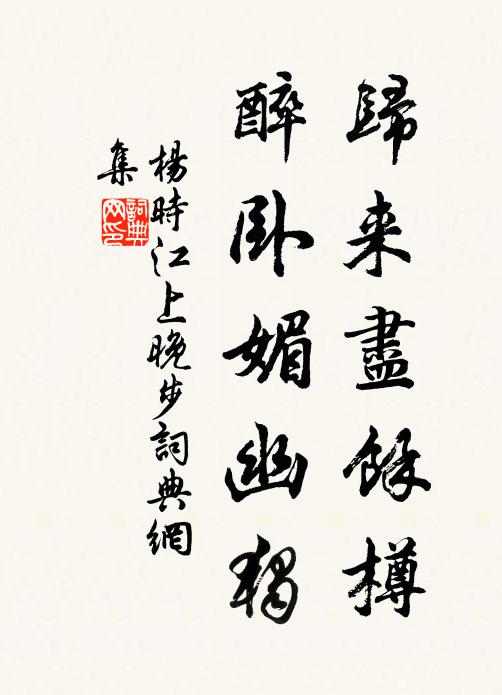 歸来盡餘樽
醉卧媚幽獨
楊時江上晚步詞典網
集
詞典网印